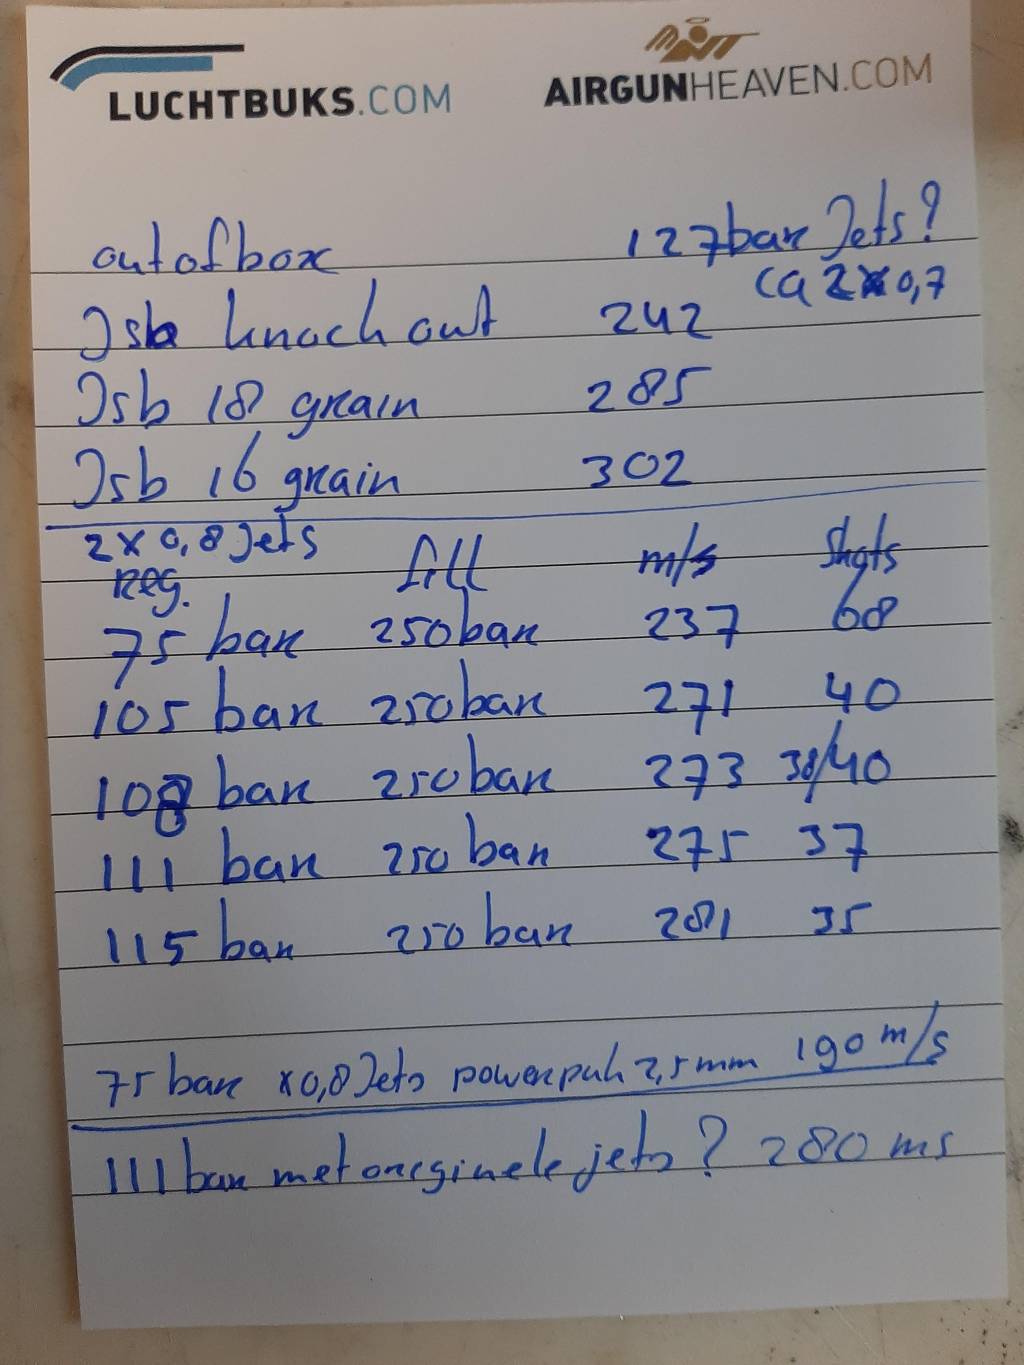 LUCHTBUKS.COM AIRGUNHEAVEN.COM
out of box 127bar Jets?
ca 2x0,7
Jsb knock out 242
Jsb 18 grain 285
Jsb 16 grain 302
2x0,8 Jets
Reg. fill m/s Shots
75 bar 250bar 237 68
105 bar 250bar 271 40
108 bar 250bar 273 38/40
111 bar 250 bar 275 37
115 bar 250 bar 281 35
75 bar x0,8 Jets 2,5mm 190 m/s
111 bar met orginele jets? 280 ms